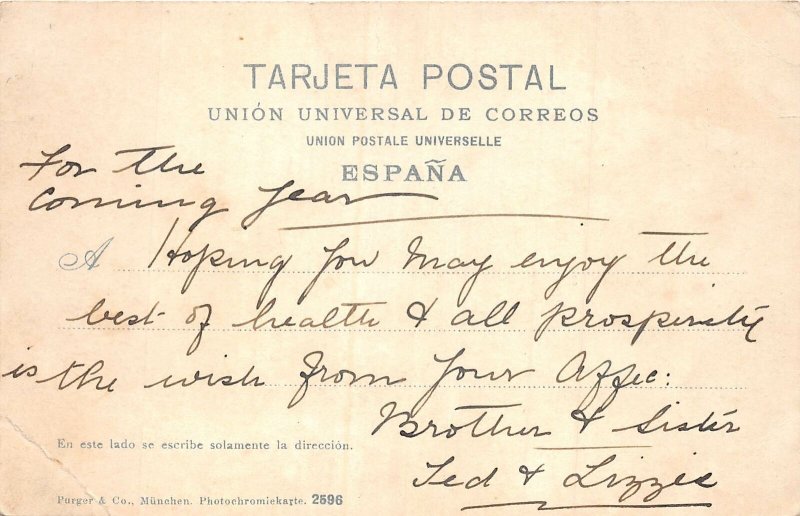 TARJETA POSTAL
UNIÓN UNIVERSAL DE CORREOS
UNION POSTALE UNIVERSELLE
ESPAÑA
For the
Coming Year
A Hoping You May enjoy the
best of health & all prosperity
is the wish from Your Affec:
Brother & Sister
Ted & Lizzie
En este lado se escribe solamente la dirección.
Purger & Co., München. Photochromiekarte. 2596